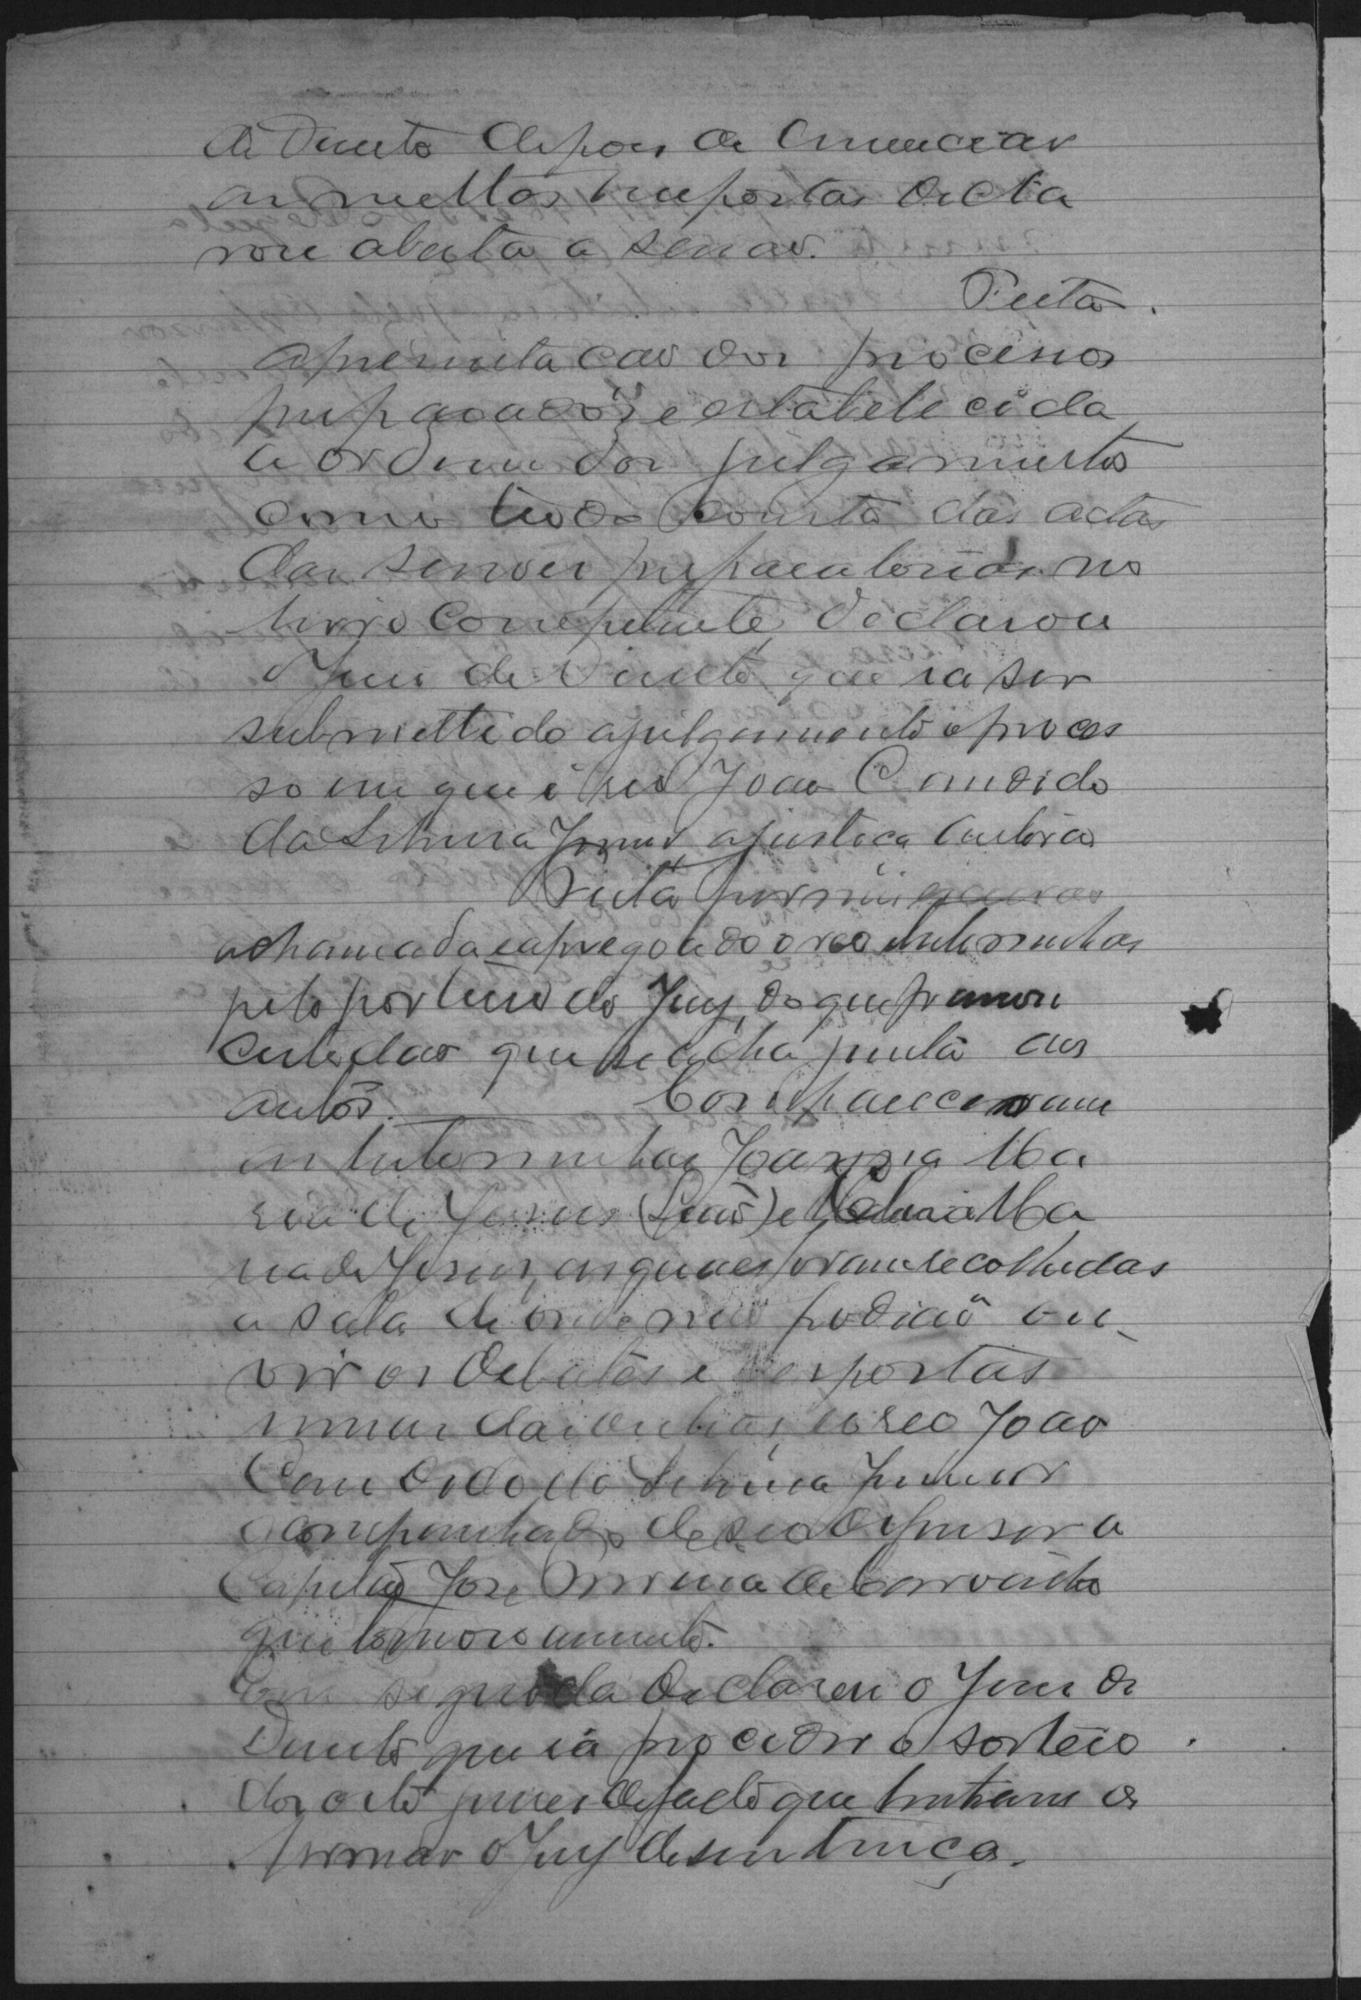 de Direito depois de annunciar
as multas impostas decla
rou aberta a sessão.
Feita
apresentação dos processos
preparados, e estabelecida
a ordem dos julgamentos
como tudo consta das actas
das sessões preparatorias no
livro competente, declarou
o Juiz de Direito que ia ser
submettido a julgamento o proces
so em que é reo João Candido
da Silveira Junior, a justiça autora
Feita por mim
a chamada e apregoado o reo e testemunhas
pelo porteiro do Jury, do que passou
certidão que se acha junta aos
autos. Compareceram
as testemunhas Joanna Ma
ria de Jesus e Maria
ria de Jesus, as quaes foram recolhidas
a sala de onde não podião ou
vir os debates e respostas
umas das outras, e o reo João
Candido da Silveira Junior
acompanhado de seo defensor o
Capitão José de Carvalho
que tomou assento.
Em seguida declarou o Juiz de
Direito que ia proceder o sorteio
dos oito juizes de facto que tinham de
formar o Jury de sentença.